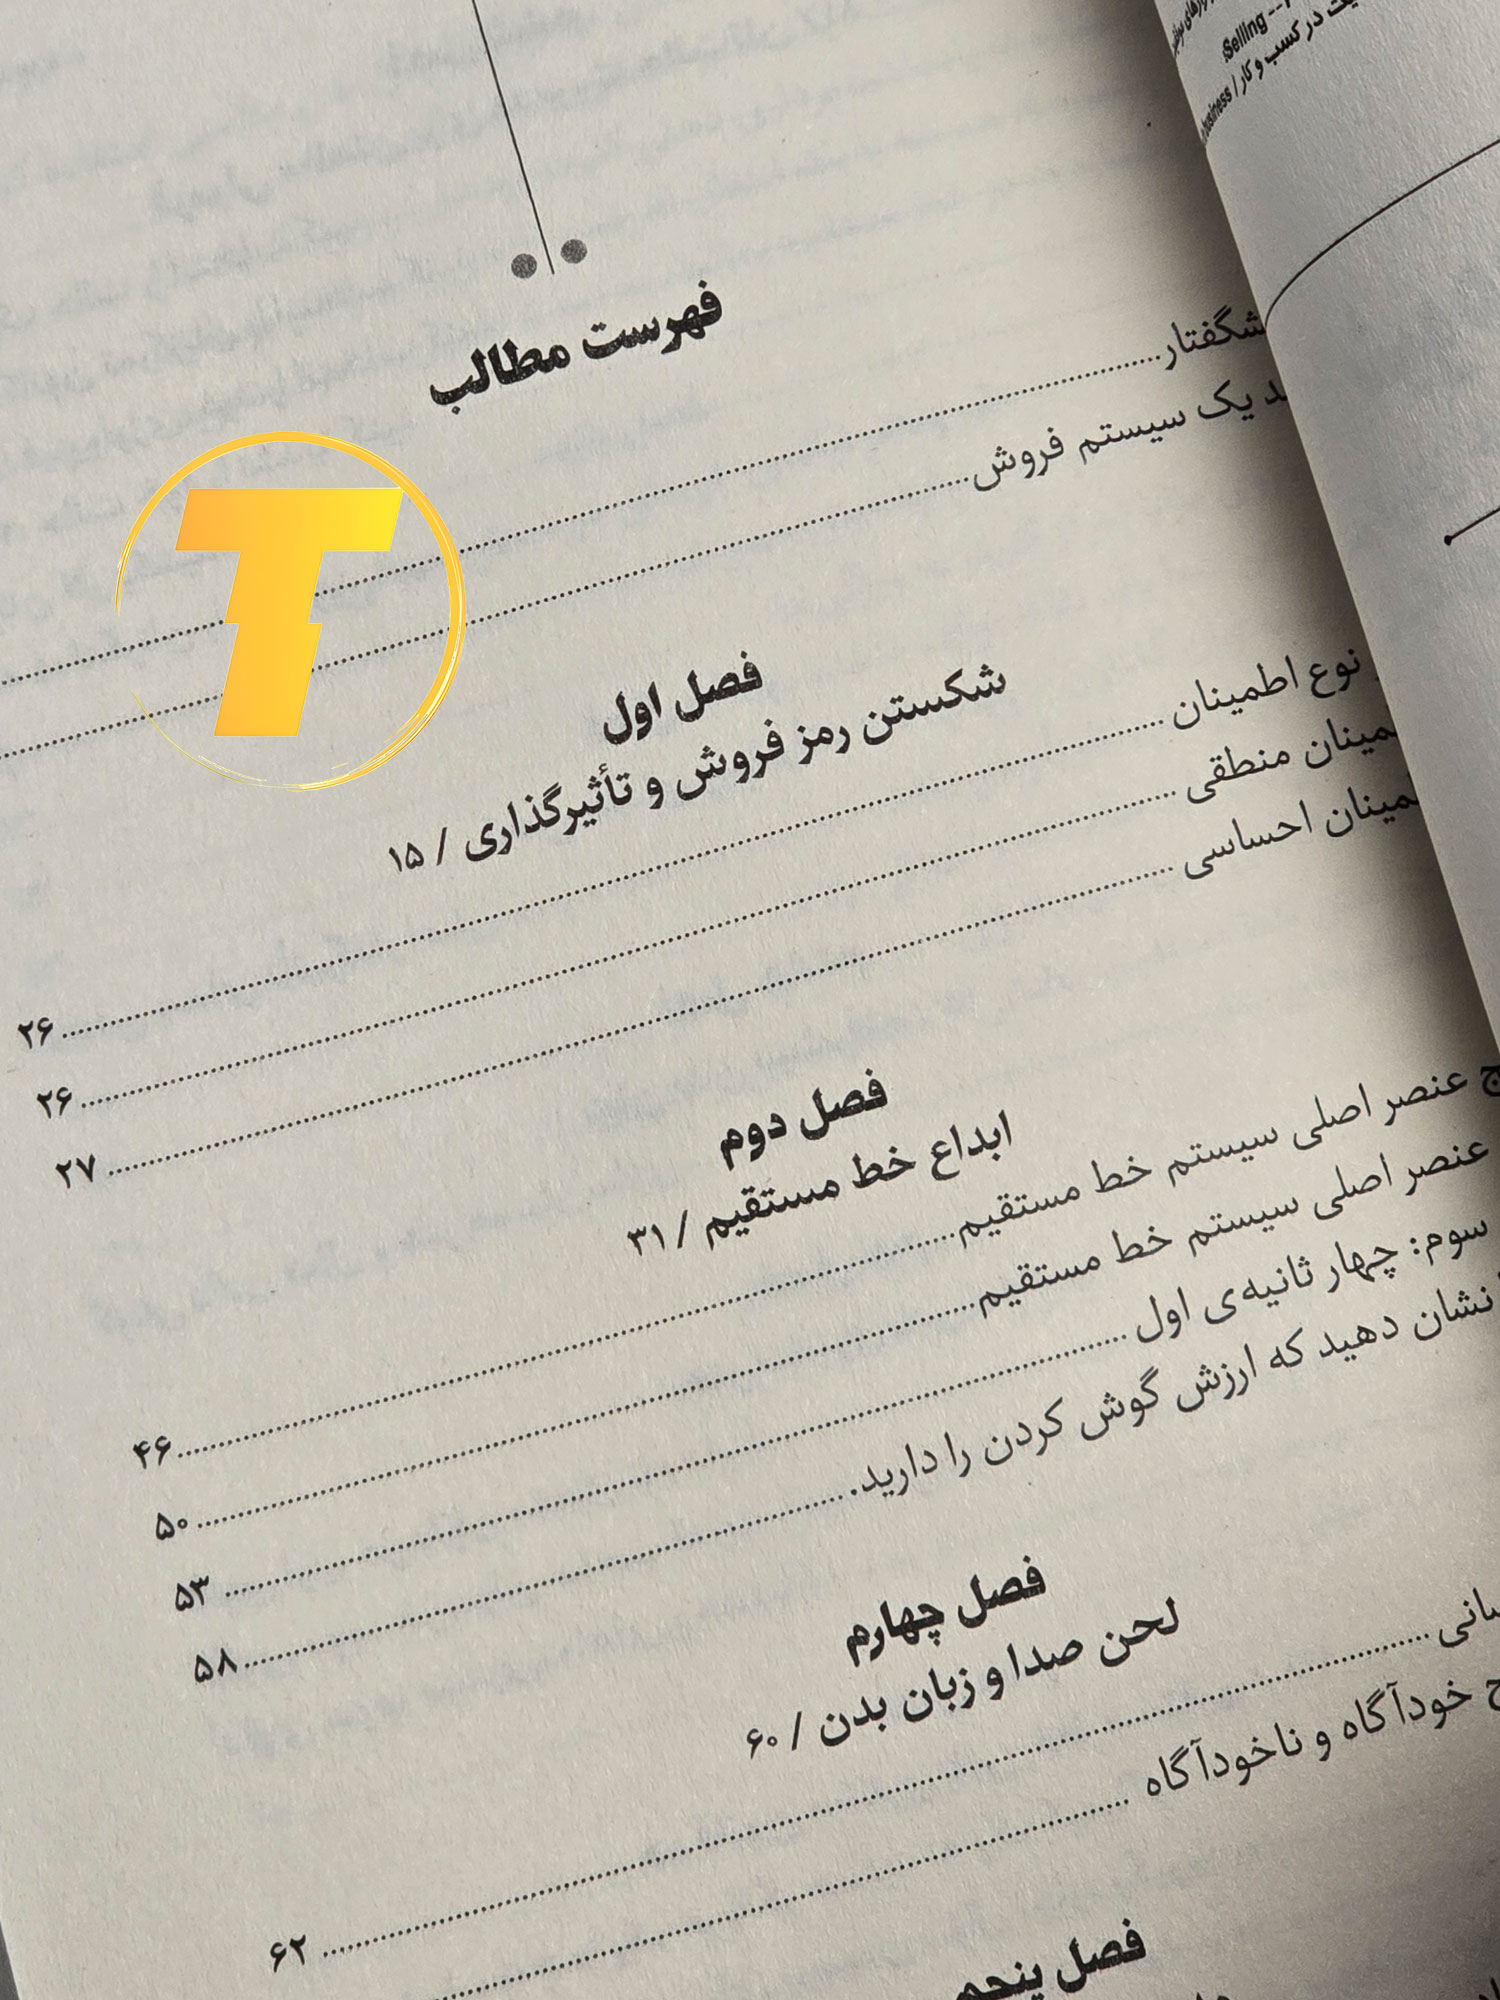 Selling
در کسب و کار / business
فهرست مطالب
یک سیستم فروش
فصل اول
شکستن رمز فروش و تأثیرگذاری / ۱۵
نوع اطمینان ۲۶
منطقی ۲۶
احساسی ۲۷
فصل دوم
ابداع خط مستقیم / ۳۱
عنصر اصلی سیستم خط مستقیم ۴۶
عنصر اصلی سیستم خط مستقیم ۵۰
سوم: چهار ثانیه‌ی اول ۵۳
نشان دهید که ارزش گوش کردن را دارید. ۵۸
فصل چهارم
لحن صدا و زبان بدن / ۶۰
۶۲
خودآگاه و ناخودآگاه
فصل پنجم
T